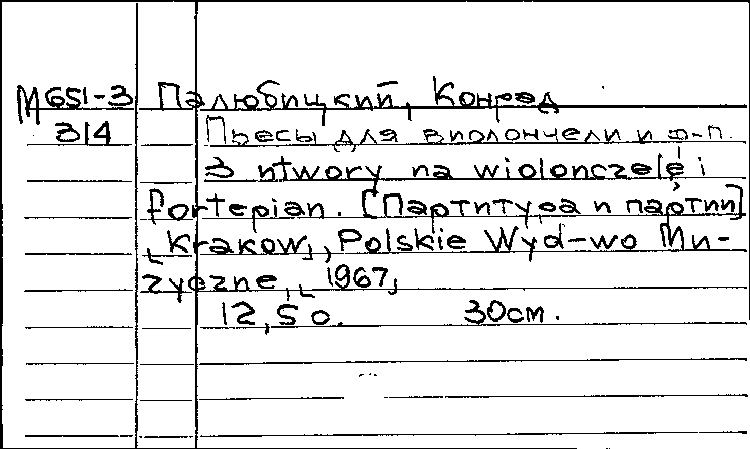 М651-3 Палюбицкий, Конрад
314 Пьесы для виолончели и ф-п.
3 utwory na wiolonczelę i
fortepian. [Партитура и партии]
[Krakow], Polskie Wyd-wo Mu-
zyczne, [1967]
12,50. 30см.